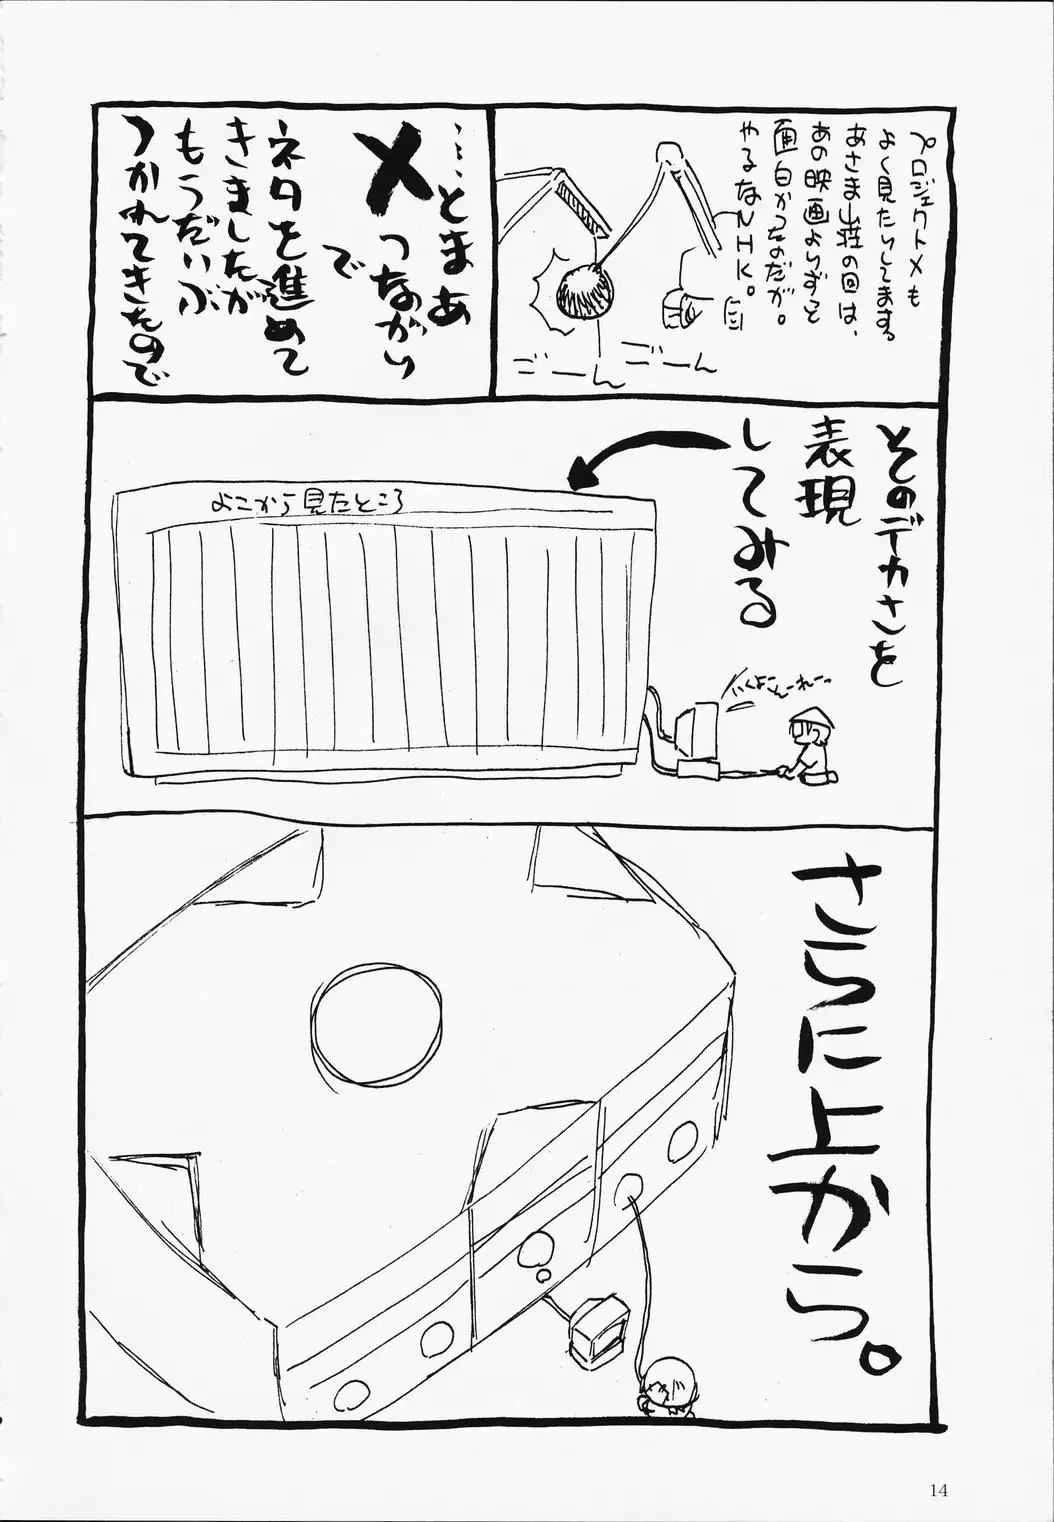 プロジェクトメも
よく見たりしてます。
あさま山荘の回は、
あの映画よりずっと
面白かったのだが。
やるなNHK。
ごーん
ごーん
……とまあ
メつながり
で
ネタを進めて
きましたが
もうだいぶ
つかれてきたので
そのデカさを
表現
してみる
よこから見たところ
さらに上から。
14